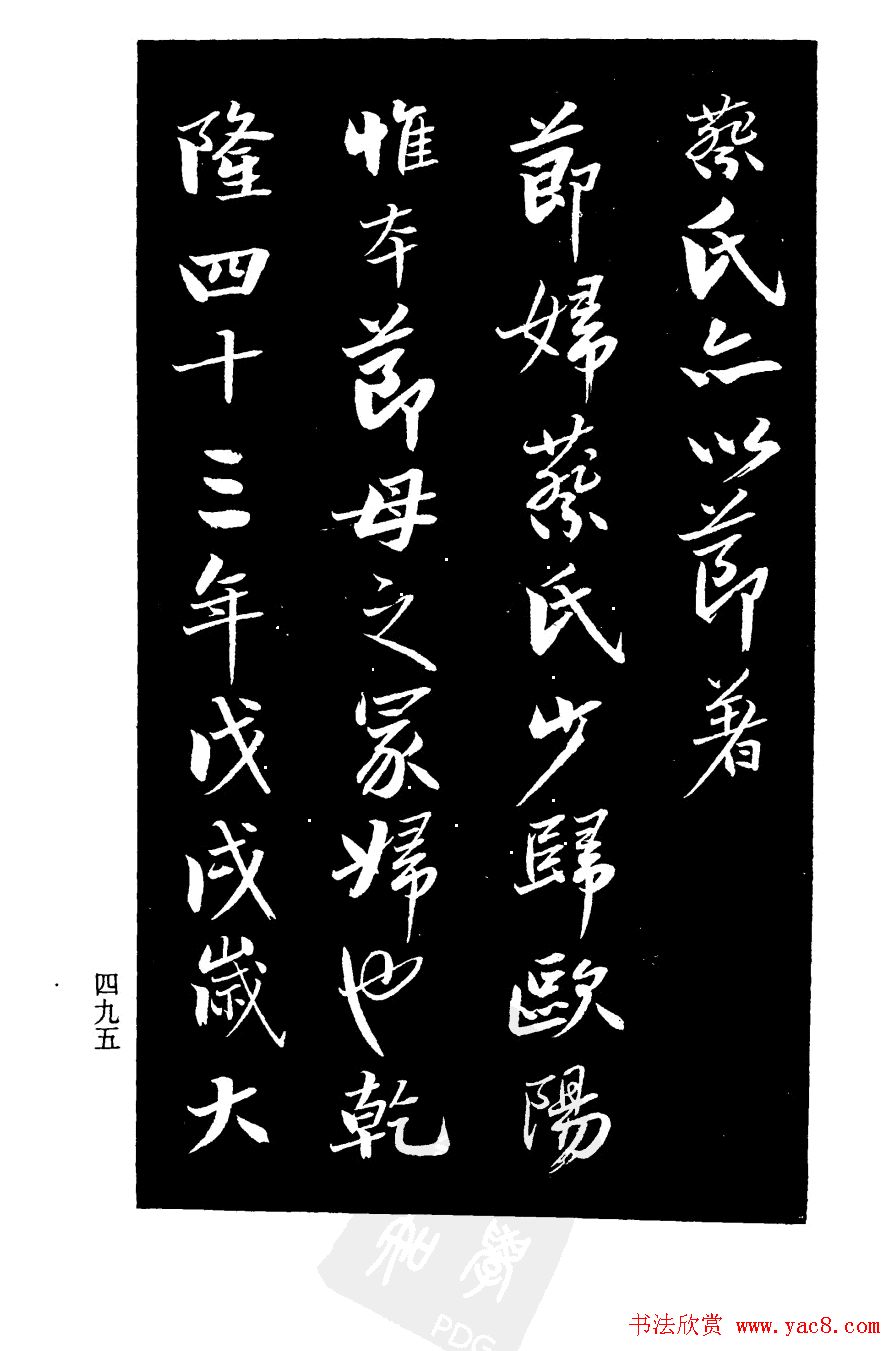 蔡氏亦以節著
節婦蔡氏少歸歐陽
惟本節母之冢婦也乾
隆四十三年戊戌歲大
四九五
书法欣赏 www.yac8.com
PDG